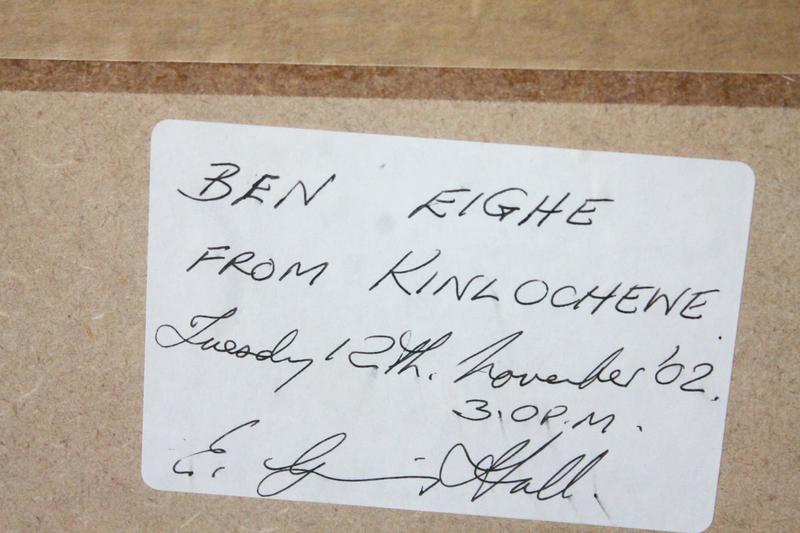 BEN EIGHE
FROM KINLOCHEWE.
Tuesday 12th. November '02.
3.0P.M.
E. Hall.